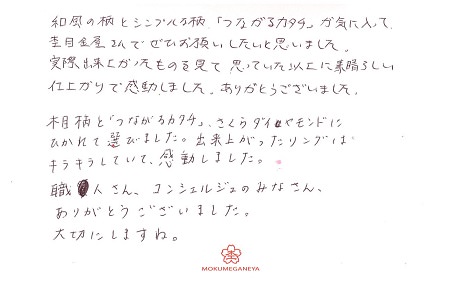 和風の柄とシンプルな柄「つながるカタチ」が気に入って、
杢目金屋さんでぜひお願いしたいと思いました。
実際出来上がったものを見て思っていた以上に素晴らしい
仕上がりで感動しました。ありがとうございました。
木目柄と「つながるカタチ」、さくらダイヤモンドに
ひかれて選びました。出来上がったリングは
キラキラしていて、感動しました。
職人さん、コンシェルジュのみなさん、
ありがとうございました。
大切にしますね。
MOKUMEGANEYA